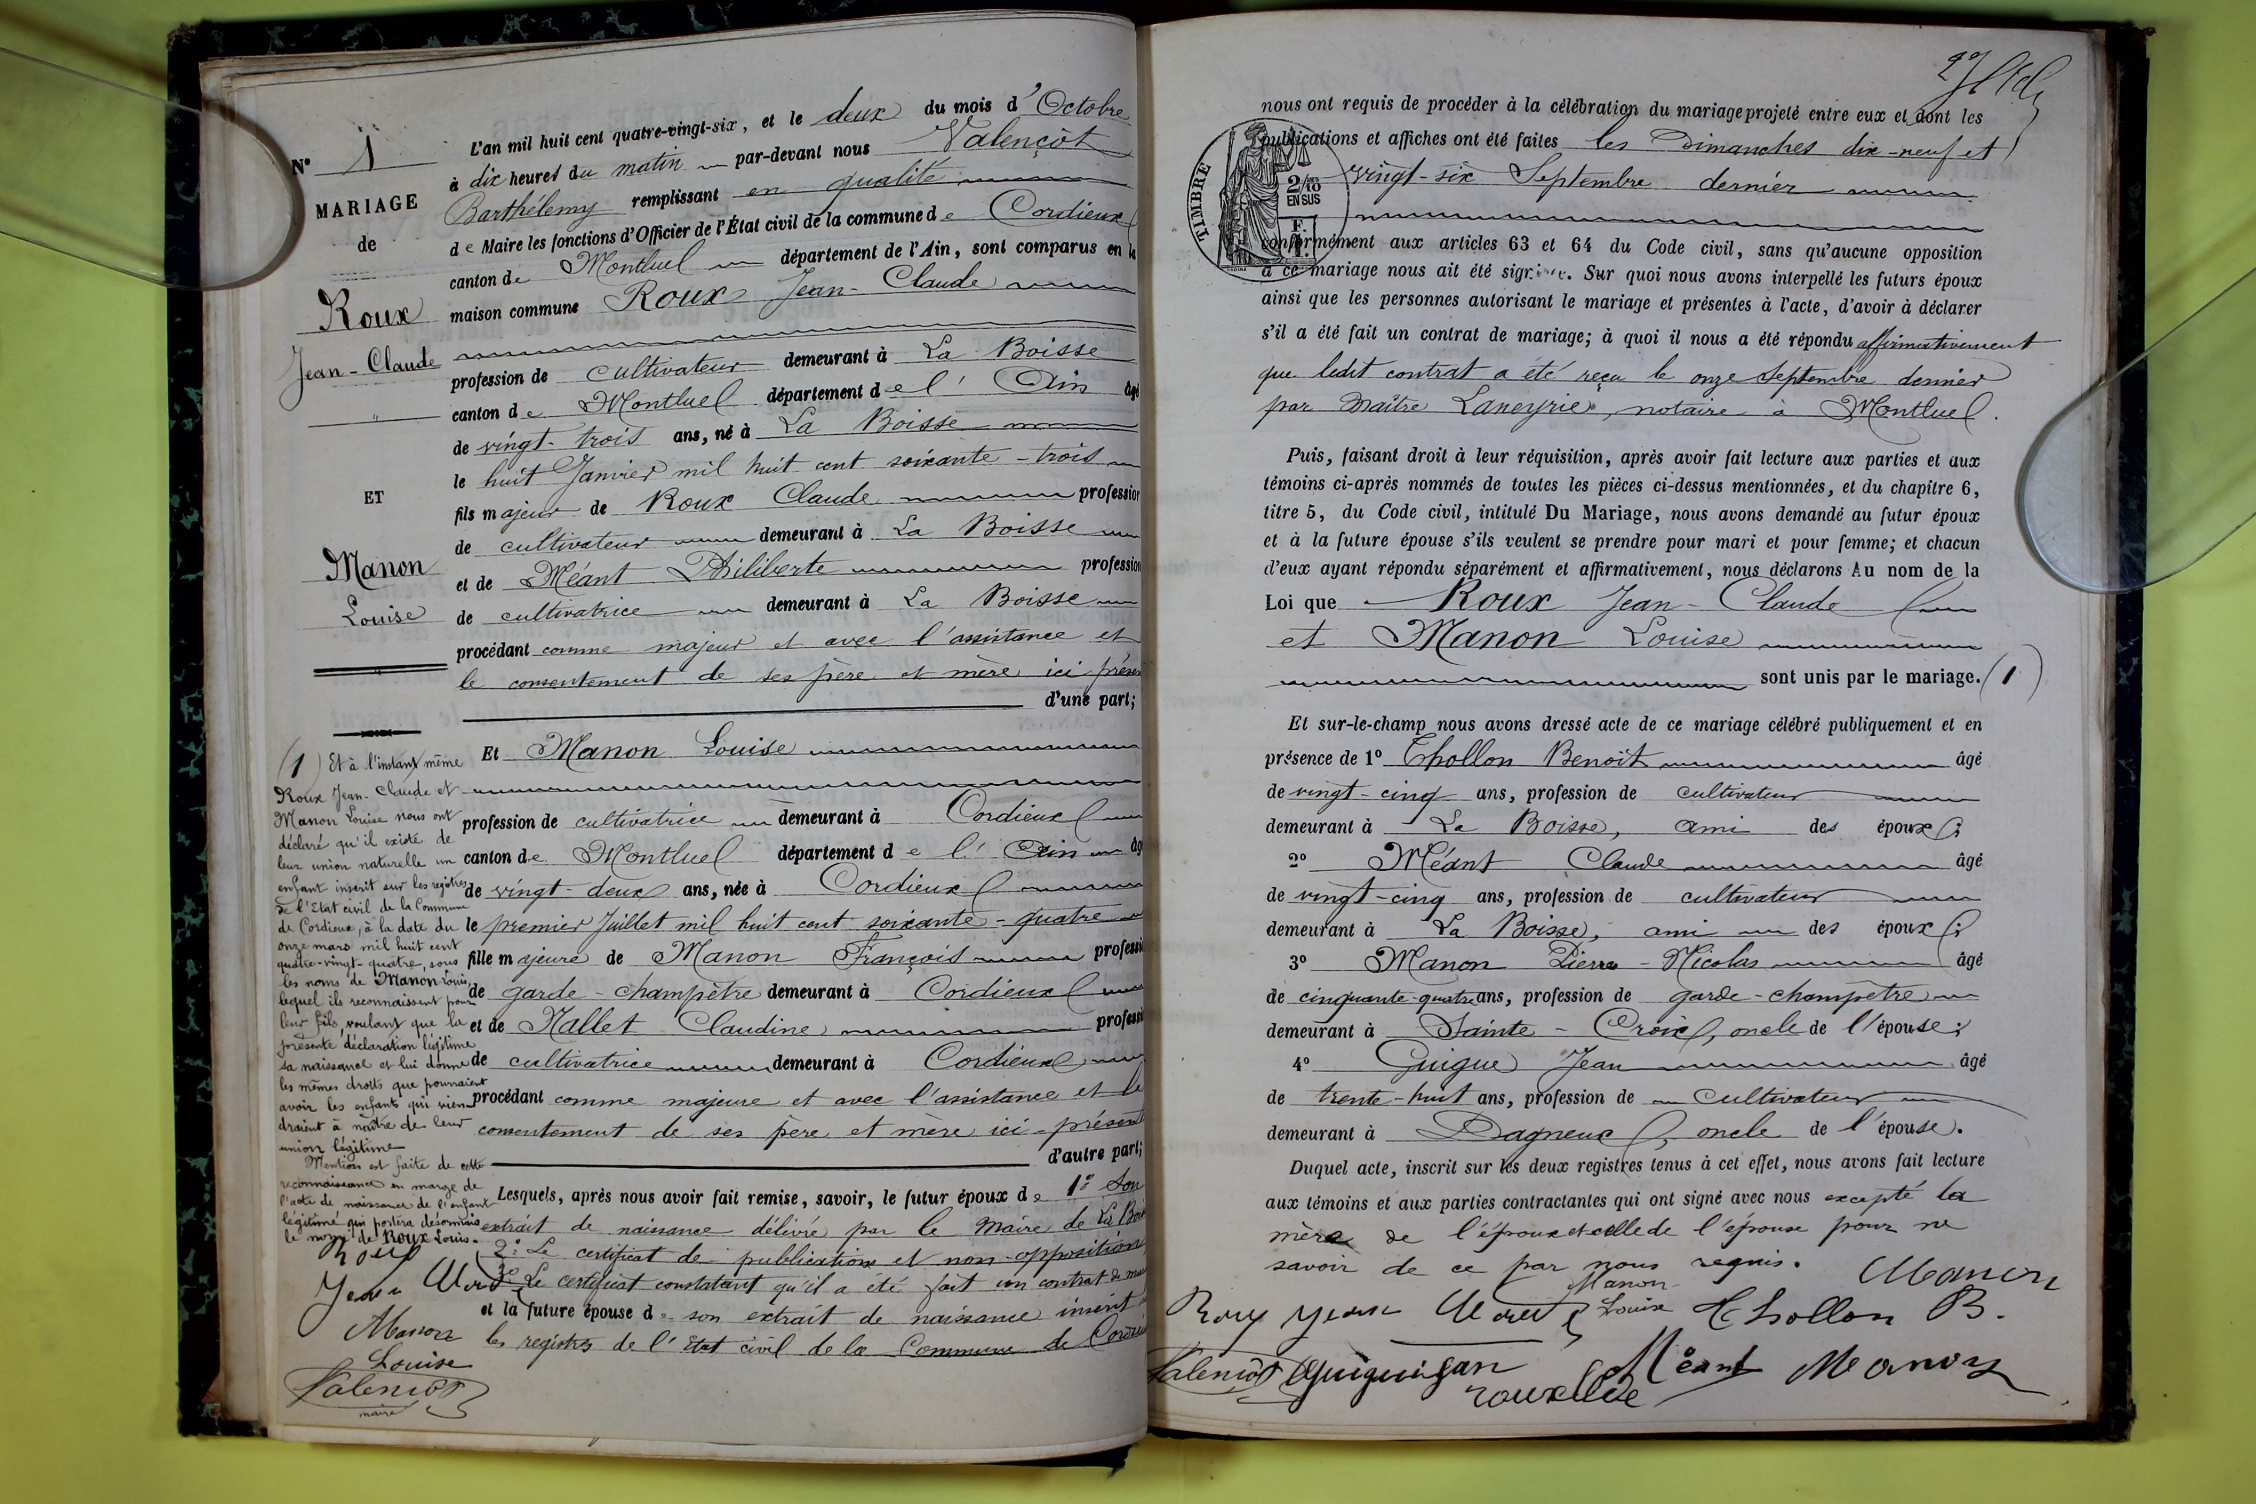 N° 1
MARIAGE
de
Roux
Jean-Claude
"
ET
Manon
Louise
"
L'an mil huit cent quatre-vingt-six, et le deux du mois d'Octobre
à dix heures du matin par-devant nous Valençot
Barthélemy remplissant en qualité
de Maire les fonctions d'Officier de l'État civil de la commune de Cordieux
canton de Montluel département de l'Ain, sont comparus en la
maison commune Roux Jean-Claude
profession de cultivateur demeurant à La Boisse
canton de Montluel département de l'Ain âgé
de vingt-trois ans, né à La Boisse
le huit Janvier mil huit cent soixante-trois
fils majeur de Roux Claude profession
de cultivateur demeurant à La Boisse
et de Méant Philiberte profession
de cultivatrice demeurant à La Boisse
procédant comme majeur et avec l'assistance et
le consentement de ses père et mère ici présen
d'une part;
Et Manon Louise
profession de cultivatrice demeurant à Cordieux
canton de Montluel département de l'Ain âg
de vingt-deux ans, née à Cordieux
le premier Juillet mil huit cent soixante-quatre
fille majeure de Manon François professi
de garde-champêtre demeurant à Cordieux
et de Nallet Claudine professi
de cultivatrice demeurant à Cordieux
procédant comme majeure et avec l'assistance et le
consentement de ses père et mère ici-présent
d'autre part;
Lesquels, après nous avoir fait remise, savoir, le futur époux de 1° Son
extrait de naissance délivré par le Maire de La Boi
2° Le certificat de publications et non-opposition
3° Le certificat constatant qu'il a été fait un contrat de ma
et la future épouse de son extrait de naissance inscrit
les registres de l'Etat civil de la Commune de Cordieu
(1) Et à l'instant même
Roux Jean-Claude et
Manon Louise nous ont
déclaré qu'il existe de
leur union naturelle un
enfant inscrit sur les registres
de l'Etat civil de la Commune
de Cordieux, à la date du
onze mars mil huit cent
quatre-vingt-quatre, sous
les noms de Manon Louis,
lequel ils reconnaissent pour
leur fils, voulant que la
présente déclaration légitime
sa naissance et lui donne
les mêmes droits que pourraient
avoir les enfants qui vien
draient à naître de leur
union légitime
Mention est faite de cette
reconnaissance en marge de
l'acte de naissance de l'enfant
légitimé qui portera désormais
le nom de Roux Louis.
Manon
Louise
Valençot
maire
nous ont requis de procéder à la célébration du mariage projeté entre eux et dont les
publications et affiches ont été faites les Dimanches dix-neuf et
vingt-six Septembre dernier
TIMBRE
2/10
EN SUS
conformément aux articles 63 et 64 du Code civil, sans qu'aucune opposition
à ce mariage nous ait été signifiée. Sur quoi nous avons interpellé les futurs époux
ainsi que les personnes autorisant le mariage et présentes à l'acte, d'avoir à déclarer
s'il a été fait un contrat de mariage; à quoi il nous a été répondu affirmativement
que ledit contrat a été reçu le onze Septembre dernier
par Maître Laneyrie, notaire à Montluel.
Puis, faisant droit à leur réquisition, après avoir fait lecture aux parties et aux
témoins ci-après nommés de toutes les pièces ci-dessus mentionnées, et du chapitre 6,
titre 5, du Code civil, intitulé Du Mariage, nous avons demandé au futur époux
et à la future épouse s'ils veulent se prendre pour mari et pour femme; et chacun
d'eux ayant répondu séparément et affirmativement, nous déclarons Au nom de la
Loi que Roux Jean-Claude
et Manon Louise
sont unis par le mariage. (1)
Et sur-le-champ nous avons dressé acte de ce mariage célébré publiquement et en
présence de 1° Thollon Benoit âgé
de vingt-cinq ans, profession de cultivateur
demeurant à La Boisse, ami des époux;
2° Méant Claude âgé
de vingt-cinq ans, profession de cultivateur
demeurant à La Boisse, ami des époux;
3° Manon Pierre-Nicolas âgé
de cinquante-quatre ans, profession de garde-champêtre
demeurant à Sainte-Croix, oncle de l'épouse;
4° Guigue Jean âgé
de trente-huit ans, profession de cultivateur
demeurant à Dagneux, oncle de l'épouse.
Duquel acte, inscrit sur les deux registres tenus à cet effet, nous avons fait lecture
aux témoins et aux parties contractantes qui ont signé avec nous excepté la
mère de l'époux et celle de l'épouse pour ne
savoir de ce par nous requis.
Manon
Manon
Louise
Thollon B.
Valençot
Méant
Manon